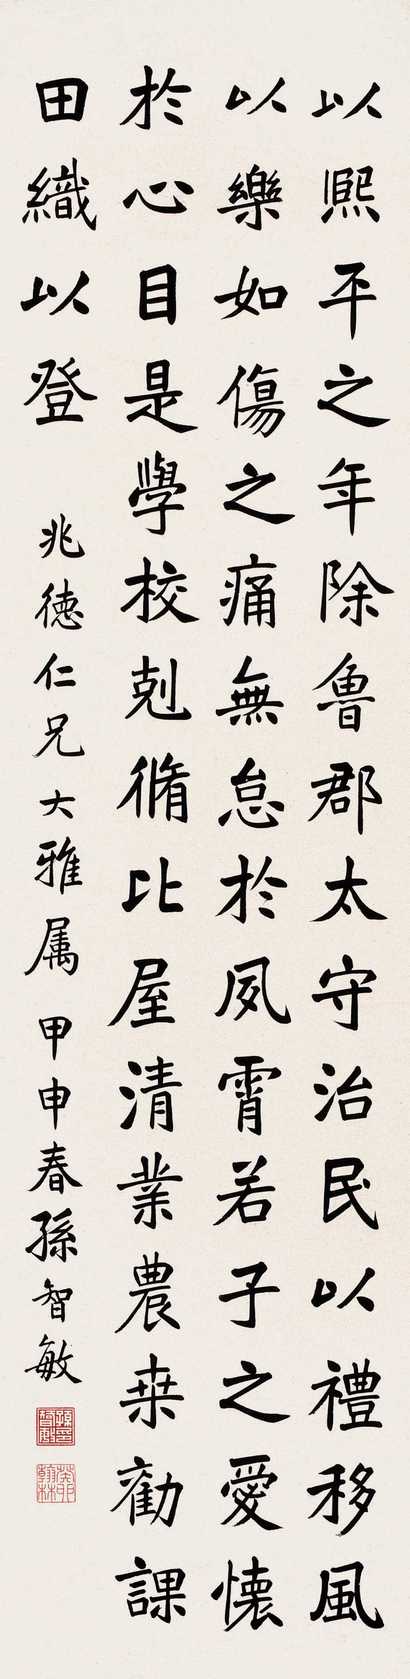 以熙平之年除魯郡太守治民以禮移風
以樂如傷之痛無怠於夙霄若子之愛懷
於心目是學校剋脩比屋清業農桒勸課
田織以登
兆德仁兄大雅属 甲申春孫智敏
癸卯翰林